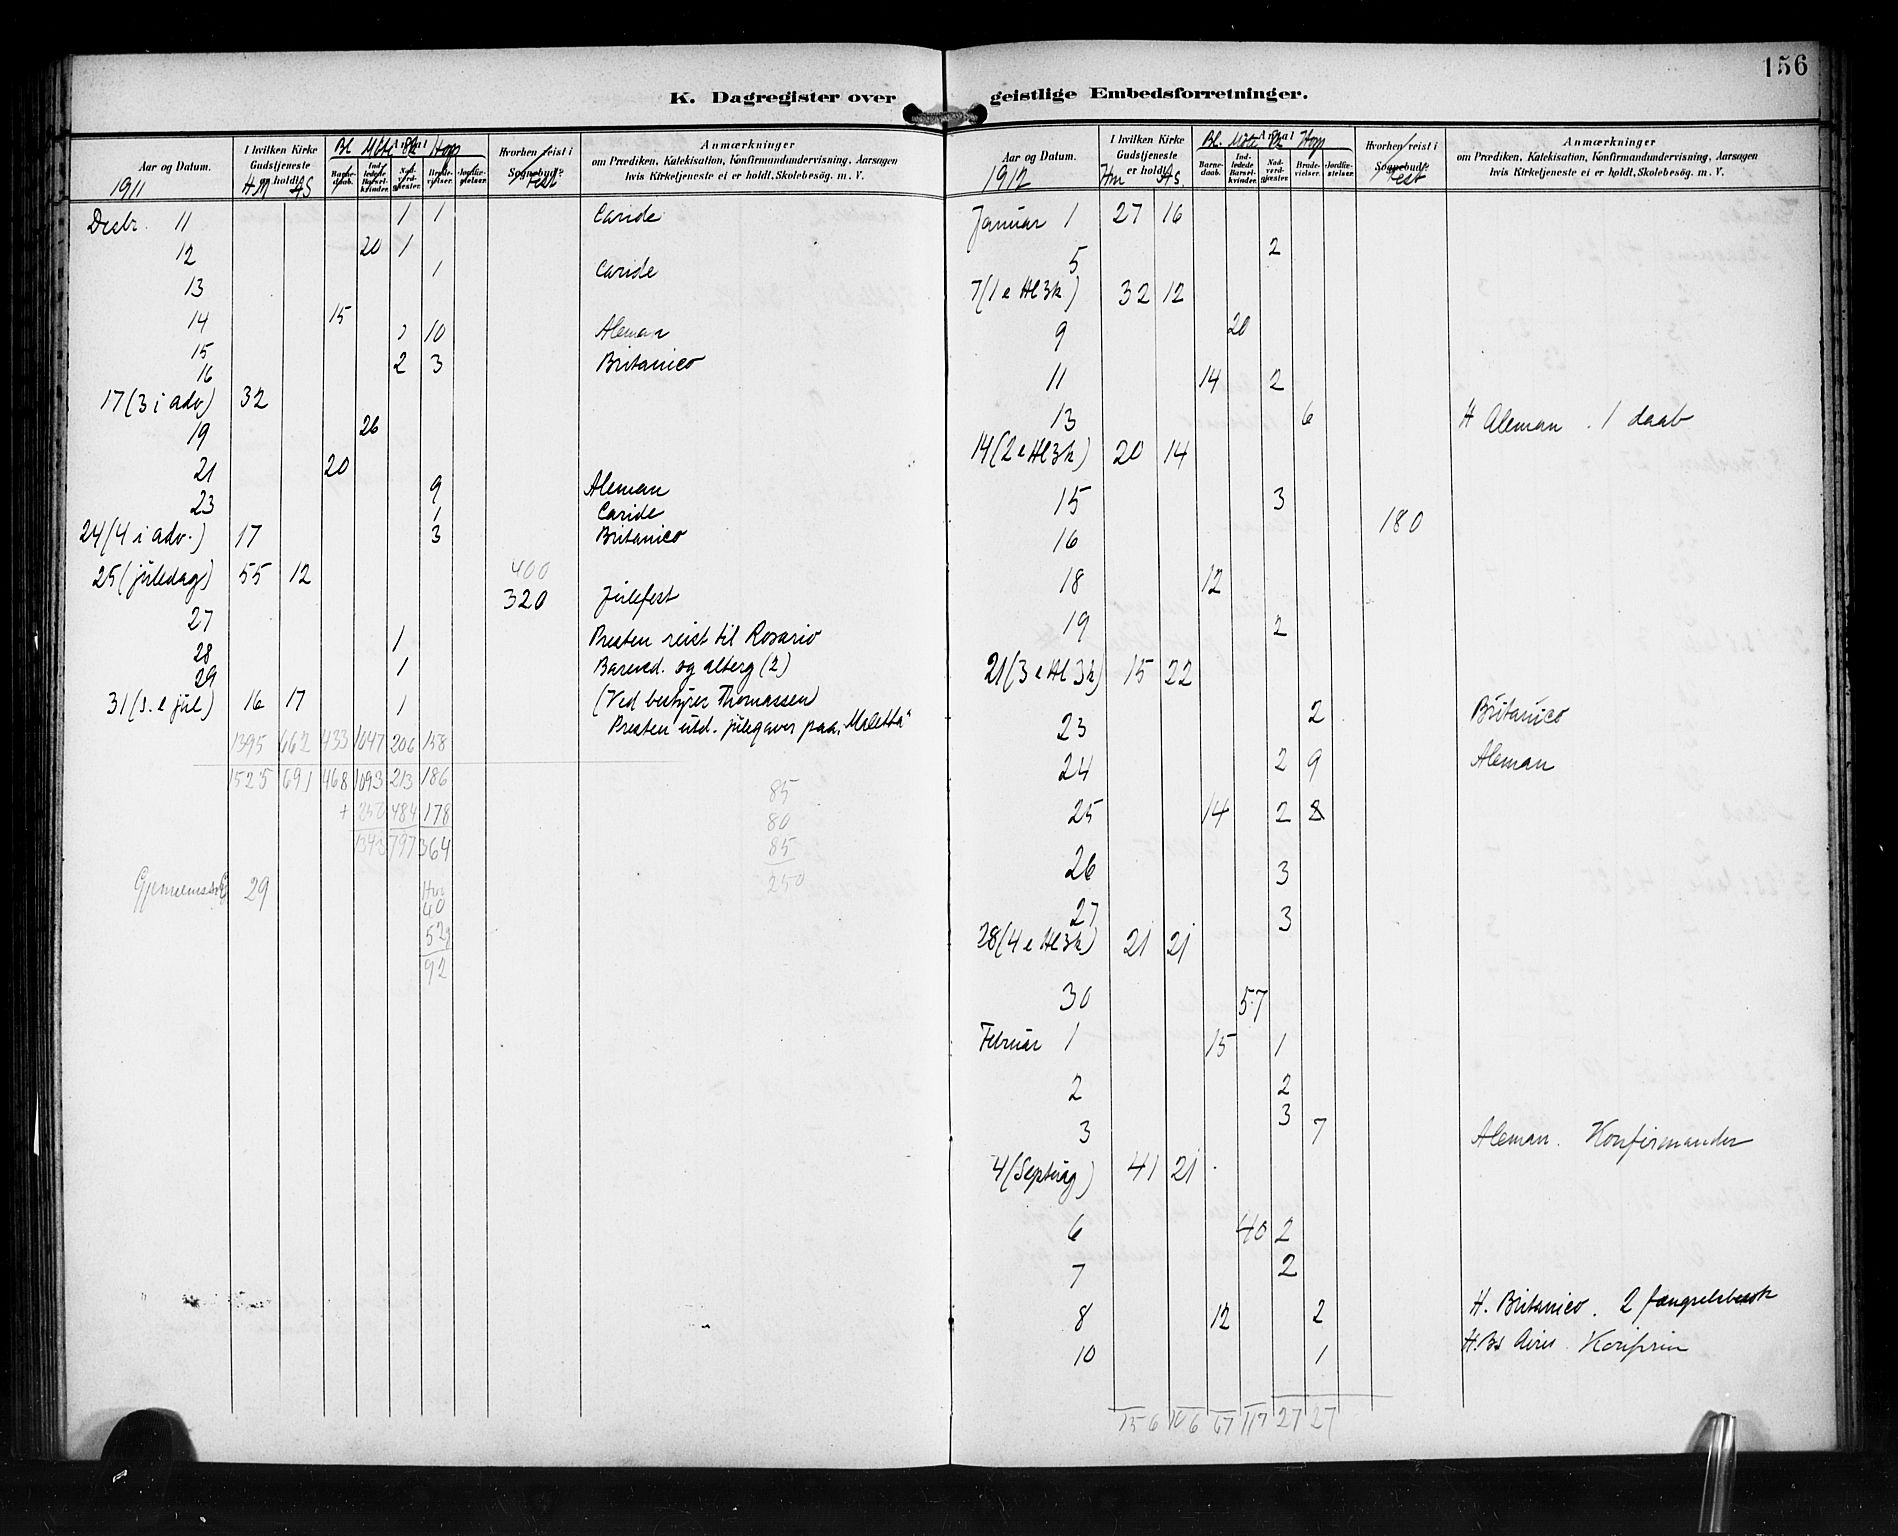 156
K. Dagregister over geistlige Embedsforretninger.
Aar og Datum. 1911
I hvilken Kirke Gudstjeneste er holdt. Hm As
Bl. Möte Sk Hosp
Antal
Barne-daab. Ind-ledede Barsel-kvinder. Nad-verd-gjester. Brude-vielser. Jordfæ-stelser.
Hvorhen reist i Sognebud? Fest
Anmærkninger
om Prædiken, Katekisation, Konfirmandundervisning, Aarsagen
hvis Kirketjeneste ei er holdt, Skolebesøg. m. V.
Decbr. 11 1 1 Caride
12 20 1
13 1 Caride
14 15
15 10 Aleman
16 2 3 Britanico
17 (3 i adv) 32
19 26
21 20
23 9 Aleman
1 Caride
24 (4 i adv.) 17 3 Britanico
25 (juledag) 55 12 400
27 320 Julefest
28 1 Presten reist til Rosario
29 1 Barned. og alterg (2)
31 (s. e jul) 16 17 1 (Ved bestyrer Thomassen)
Presten utd. julegaver paa „Maletta"
1395 662 433 1047 206 158
1525 691 468 1093 213 186
+ 250 484 178
1343 797 364
85
80
85
250
29
40
52
92
Aar og Datum. 1912
I hvilken Kirke Gudstjeneste er holdt. Hm As.
Bl. Möte Sk Hosp
Antal
Barne-daab. Ind-ledede Barsel-kvinder. Nad-verd-gjester. Brude-vielser. Jordfæ-stelser.
Hvorhen reist i Sognebud? Fest
Anmærkninger
om Prædiken, Katekisation, Konfirmandundervisning, Aarsagen
hvis Kirketjeneste ei er holdt, Skolebesøg. m. V.
Januar 1 27 16
5 2
7 (1 e Hl3k) 32 12
9 20
11 14 2
13 6 H Aleman. 1 daab
14 (2 e Hl3k) 20 14
15 3
16 180
18 12
19 2
21 (3 e Hl3k) 15 22
23 2 Britanico
24 2 9 Aleman
25 14 2 8
26 3
27 3
28 (4 e Hl3k) 21 21
30 57
Februar 1 15 1
2 2
3 3 7 Aleman. Konfirmander
4 (Septuag) 41 21
6 40 2
7 2
8 12 2 H. Britanico. 2 fængselsbesøk
10 1 H. Bs Aires
156 106 67 117 27 27